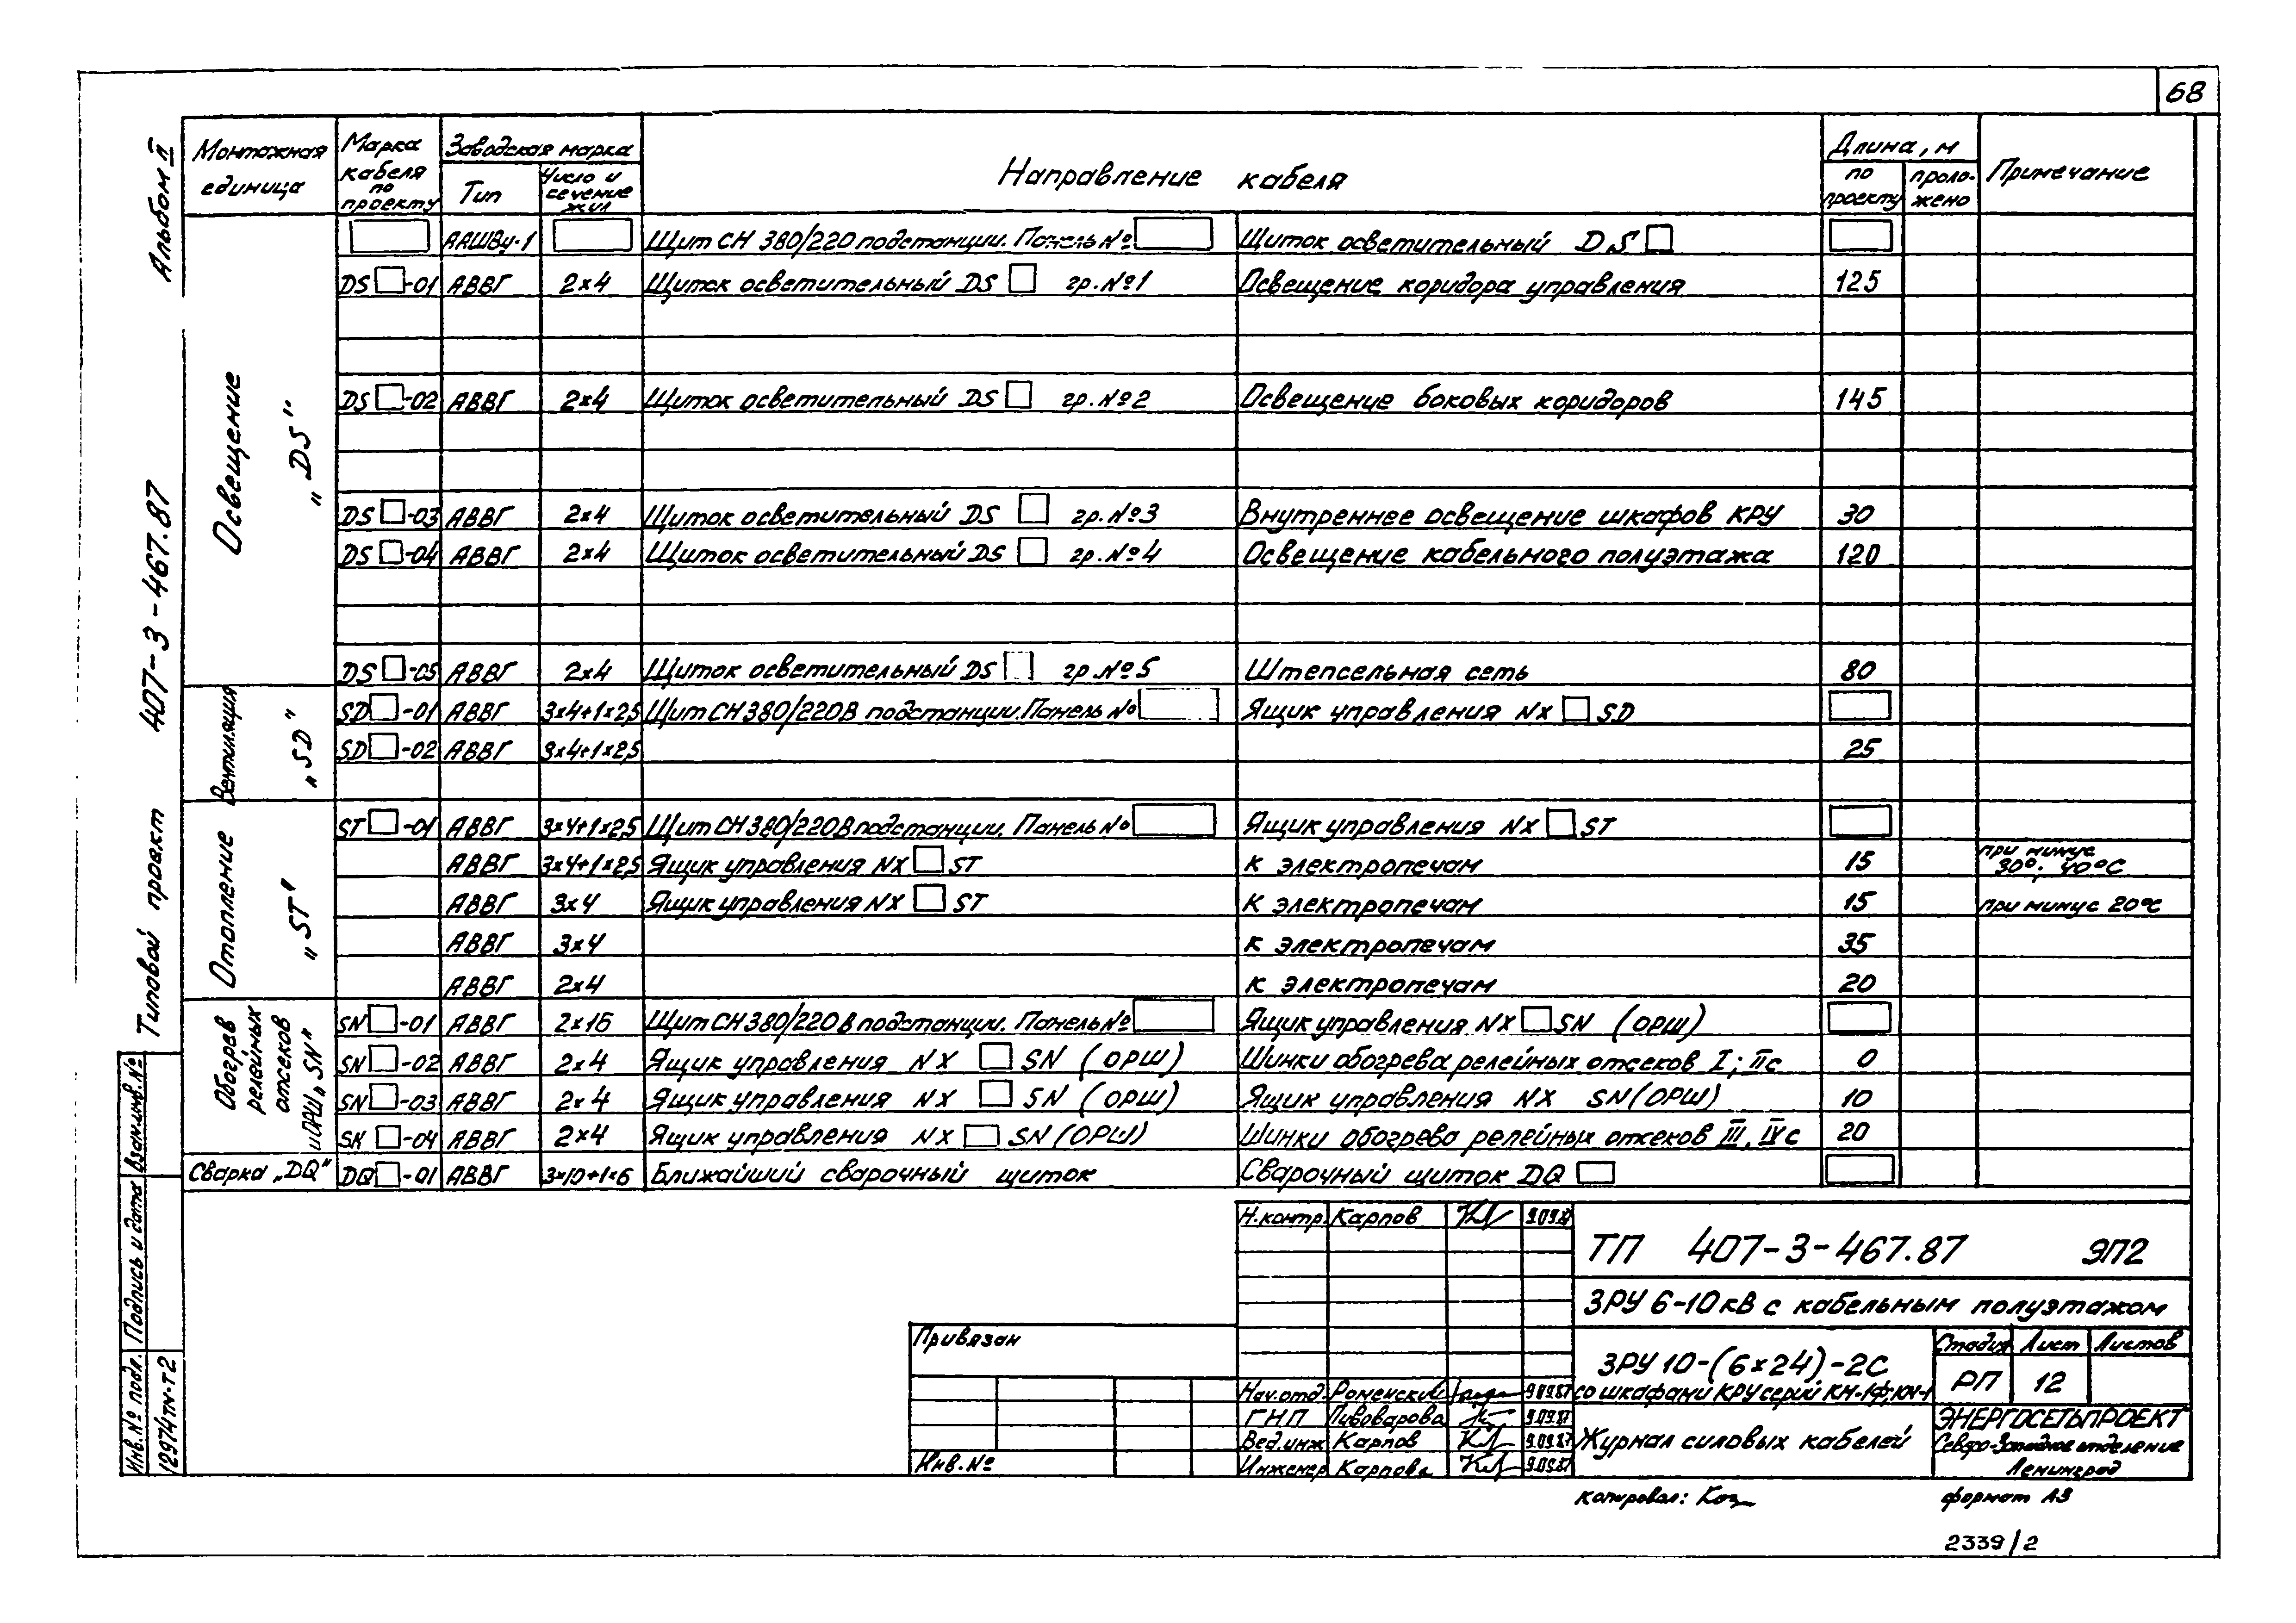 68
Альбом II
Типовой проект 407-3-467.87
Монтажная единица
Марка кабеля по проекту
Заводская марка
Тип
Число и сечение жил
Направление кабеля
Длина, м
по проекту
проложено
Примечание
Освещение „DS"
ААШВу-1 Щит СН 380/220 подстанции. Панель № Щиток осветительный DS
DS -01 АВВГ 2×4 Щиток осветительный DS гр. №1 Освещение коридора управления 125
DS -02 АВВГ 2×4 Щиток осветительный DS гр. №2 Освещение боковых коридоров 145
DS -03 АВВГ 2×4 Щиток осветительный DS гр. №3 Внутреннее освещение шкафов КРУ 30
DS -04 АВВГ 2×4 Щиток осветительный DS гр. №4 Освещение кабельного полуэтажа 120
DS -05 АВВГ 2×4 Щиток осветительный DS гр. №5 Штепсельная сеть 80
Вентиляция „SD"
SD -01 АВВГ 3×4+1×2,5 Щит СН 380/220В подстанции. Панель № Ящик управления NX SD
SD -02 АВВГ 3×4+1×2,5 25
Отопление „ST"
ST -01 АВВГ 3×4+1×2,5 Щит СН 380/220В подстанции. Панель № Ящик управления NX ST
АВВГ 3×4+1×2,5 Ящик управления NX ST к электропечам 15 при минус 30°; 40°С
АВВГ 3×4 Ящик управления NX ST к электропечам 15 при минус 20°С
АВВГ 3×4 к электропечам 35
АВВГ 2×4 к электропечам 20
Обогрев релейных отсеков и ОРШ „SN"
SN -01 АВВГ 2×16 Щит СН 380/220 В подстанции. Панель № Ящик управления NX SN (ОРШ)
SN -02 АВВГ 2×4 Ящик управления NX SN (ОРШ) Шинки обогрева релейных отсеков I; IIс 0
SN -03 АВВГ 2×4 Ящик управления NX SN (ОРШ) Ящик управления NX SN (ОРШ) 10
SN -04 АВВГ 2×4 Ящик управления NX SN (ОРШ) Шинки обогрева релейных отсеков III, IVс 20
Сварка „DQ" DQ -01 АВВГ 3×10+1×6 Ближайший сварочный щиток Сварочный щиток DQ
Взам.инв.№
Подпись и дата
Инв.№ подл.
12974тм-т2
Привязан
Инв.№
Н.контр. Карпов 9.09.87
Нач.отд. Роменский 9.09.87
ГНП Пивоварова 9.09.87
Вед.инж Карпов 9.09.87
Инженер Карпова 9.09.87
ТП 407-3-467.87 ЭП2
ЗРУ 6-10кВ с кабельным полуэтажом
ЗРУ 10-(6×24)-2С
со шкафами КРУ серий КМ-1Ф; КМ-1
Журнал силовых кабелей
Стадия Лист Листов
РП 12
ЭНЕРГОСЕТЬПРОЕКТ
Северо-Западное отделение
Ленинград
копировал:
формат А3
2339/2